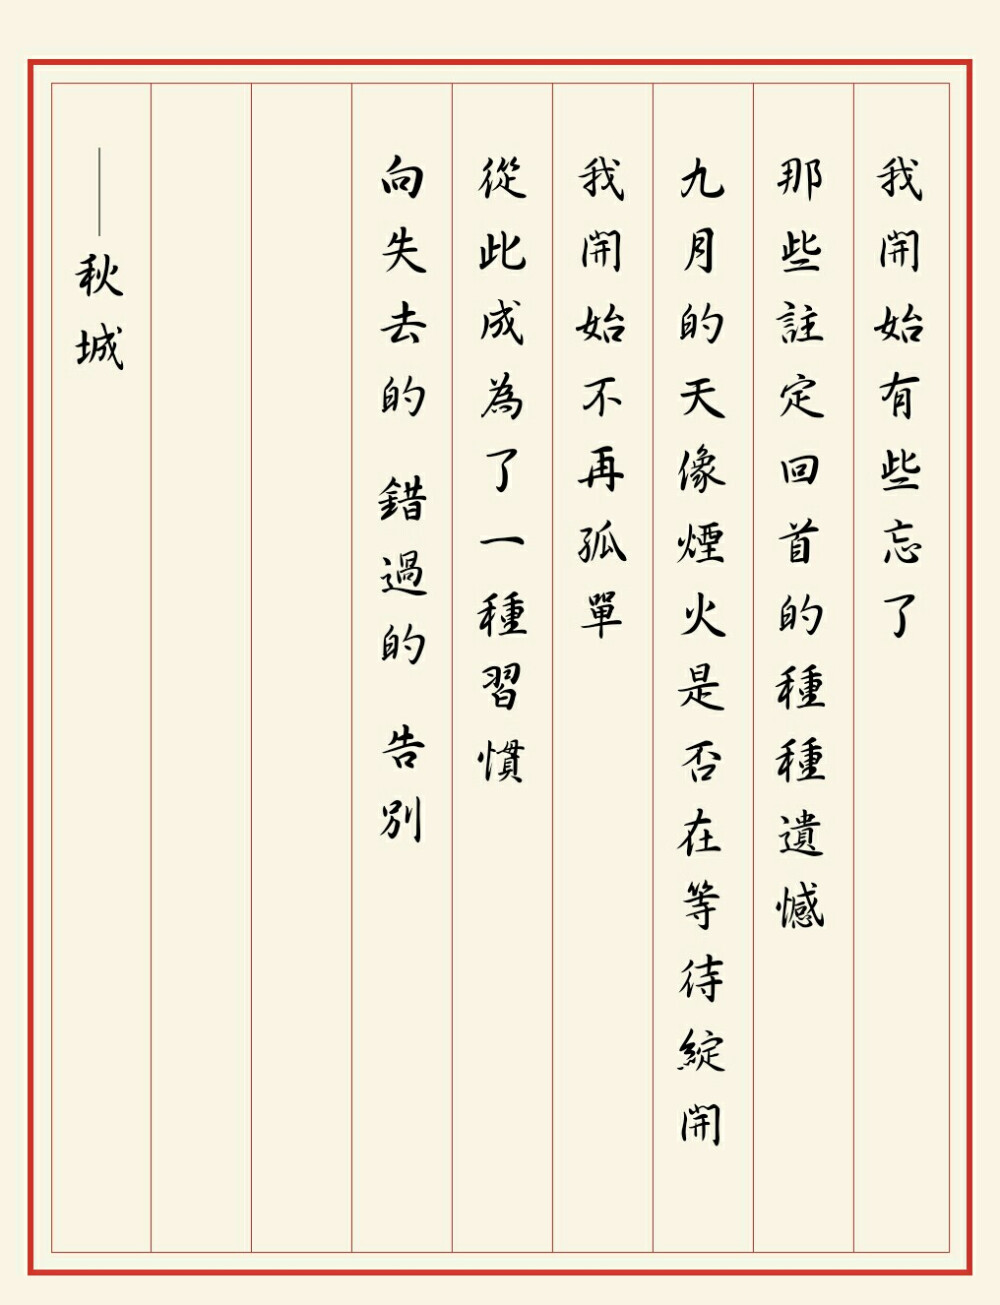 我開始有些忘了
那些註定回首的種種遺憾
九月的天像煙火是否在等待綻開
我開始不再孤單
從此成為了一種習慣
向失去的 錯過的 告別
——秋城